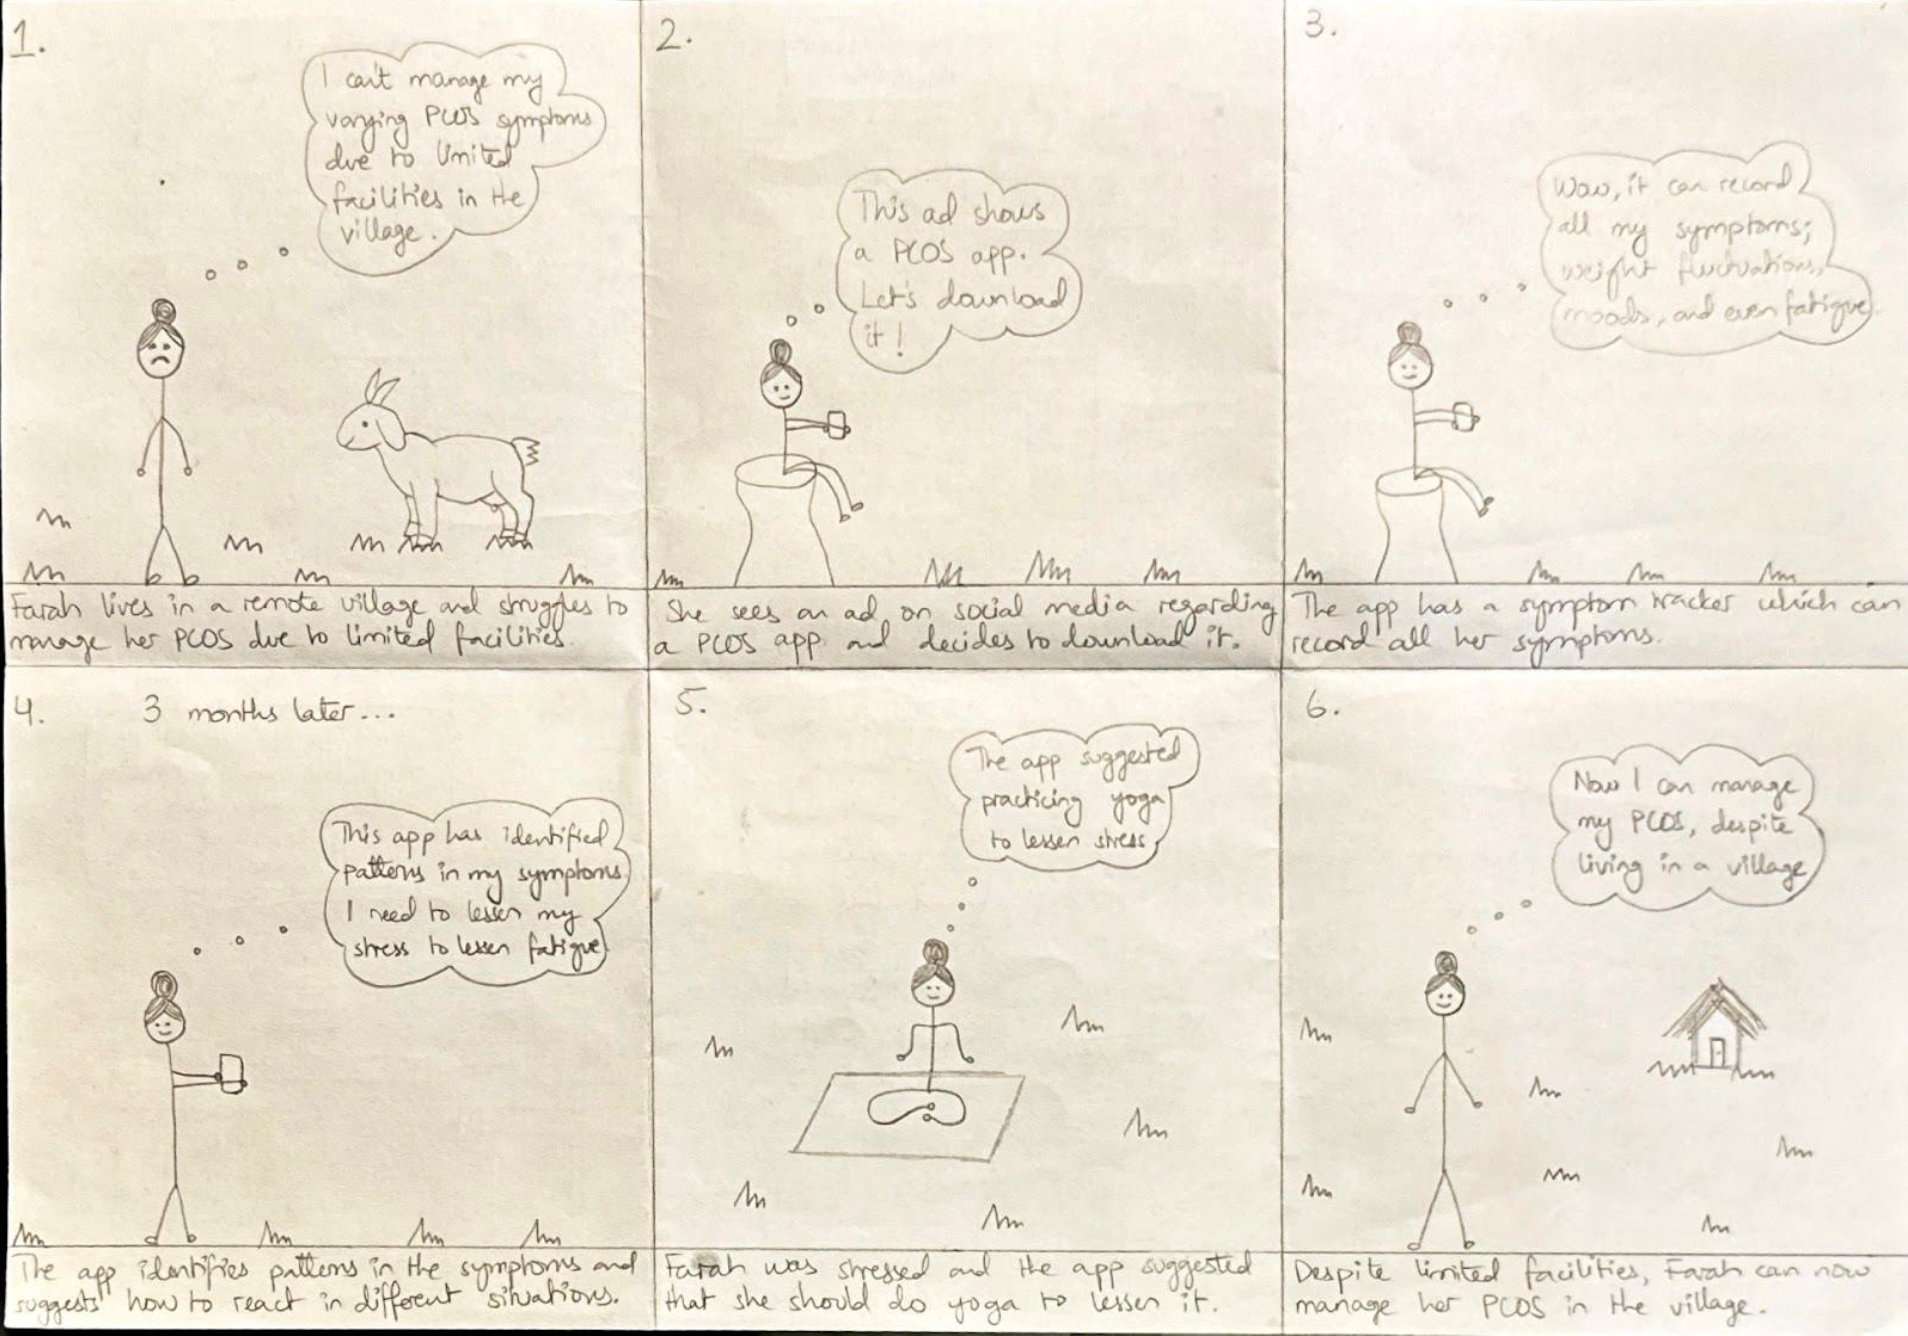 1.
I can't manage my
varying PCOS symptoms
due to limited
facilities in the
village.
Farah lives in a remote village and struggles to
manage her PCOS due to limited facilities.
2.
This ad shows
a PCOS app.
Let's download
it!
She sees an ad on social media regarding
a PCOS app and decides to download it.
3.
Wow, it can record
all my symptoms;
weight fluctuations,
moods, and even fatigue.
The app has a symptom tracker which can
record all her symptoms.
4.
3 months later...
This app has identified
patterns in my symptoms
I need to lessen my
stress to lessen fatigue
The app identifies patterns in the symptoms and
suggests how to react in different situations.
5.
The app suggested
practicing yoga
to lessen stress
Farah was stressed and the app suggested
that she should do yoga to lessen it.
6.
Now I can manage
my PCOS, despite
living in a village
Despite limited facilities, Farah can now
manage her PCOS in the village.